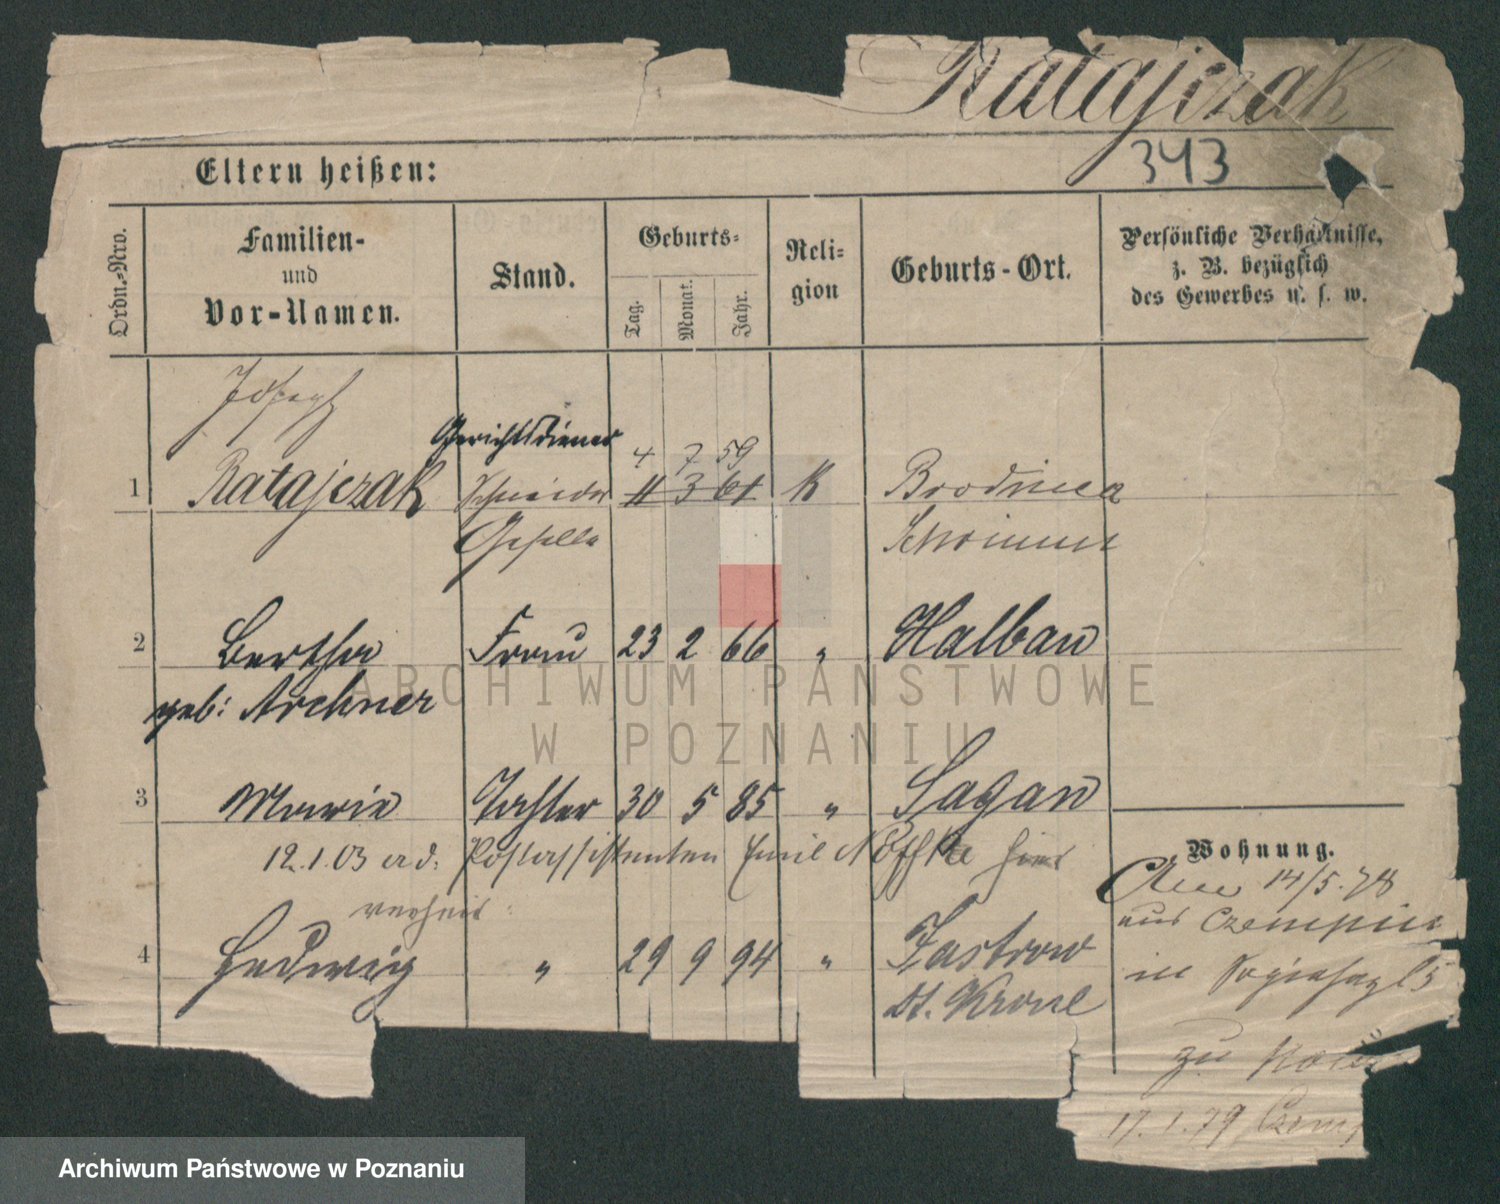 Ratajczak
343
Eltern heißen:
Ordn.-Nro.
Familien-
und
Vor-Namen.
Stand.
Geburts-
Tag.
Monat.
Jahr.
Reli-
gion
Geburts-Ort.
Persönliche Verhältnisse,
z. B. bezüglich
des Gewerbes u. s. w.
Joseph
Gerichtsdiener
4 7 59
1 Ratajczak Schneider 11 3 61 K Brodnica
Geselle Schrimm
2 Bertha Frau 23 2 66 " Halbau
geb: Archner
3 Marie Tochter 30 5 85 " Sagan
12.1.03 a. d. Postassistenten Emil Noffke hier
verheir
4 Hedwig " 29 9 94 " Jastrow
Dt. Krone
Wohnung.
Am 14/5.78
aus Czempin
in
zu
17.1.79 Czemp
ARCHIWUM PAŃSTWOWE
W POZNANIU
Archiwum Państwowe w Poznaniu